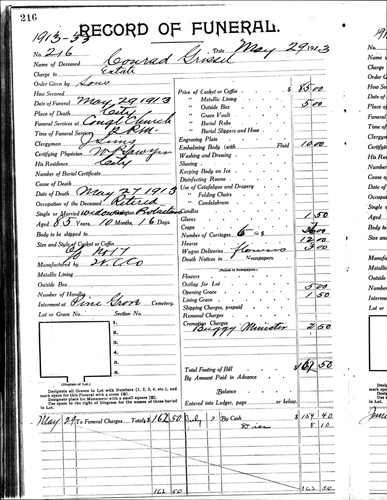 216
1913-33
RECORD OF FUNERAL.
No. 216 Date May 29 1913
Name of Deceased Conrad
Charge to Estate
Order Given by Sons
How Secured
Date of Funeral May 29 1913
Place of Death City
Funeral Services at Congl Church
Time of Funeral Service 2 P.M.
Clergyman
Certifying Physician Sawyer
His Residence City
Number of Burial Certificate
Cause of Death
Date of Death May 27 1913
Occupation of the Deceased Retired
Single or Married Widower
Aged 85 Years, 10 Months, 16 Days.
Body to be shipped to
Size and Style of Casket or Coffin
Manufactured by
Metallic Lining
Outside Box
Number of Handles
Interment at Pine Grove Cemetery.
Lot or Grave No. Section No.
1.
2.
3.
4.
5.
6.
(Diagram of Lot.)
Designate all Graves in Lot with Numbers (1, 2, 3, 4, etc.), and mark space for this Funeral with a cross (+).
Designate place for Monument with a small square
Use space to the right of Diagram for the names of those buried in Lot.
Price of Casket or Coffin $ 85 00
" Metallic Lining
" Outside Box 5 00
" Grave Vault
" Burial Robe
" Burial Slippers and Hose
Engraving Plate
Embalming Body (with Fluid 10 00
Washing and Dressing
Shaving
Keeping Body on Ice
Disinfecting Rooms
Use of Catafalque and Drapery
" Folding Chairs
" Candelabrum
Candles
Gloves 1 50
Crape
Number of Carriages 6 @ $ 36 00
Hearse 12 00
Wagon Deliveries flowers 3 00
Death Notices in Newspapers.
(Names of Newspapers)
Flowers
Outlay for Lot 5 00
Opening Grave 1 50
Lining Grave
Shipping Charges, prepaid
Removal Charges
Cremation Charges
Buggy Minister 2 50
Total Footing of Bill $ 162 50
By Amount Paid in Advance
Balance
Entered into Ledger, page or below.
May 29 To Funeral Charges Totals $ 162 50 July By Cash $ 154 40
8 10
162 50 162 50